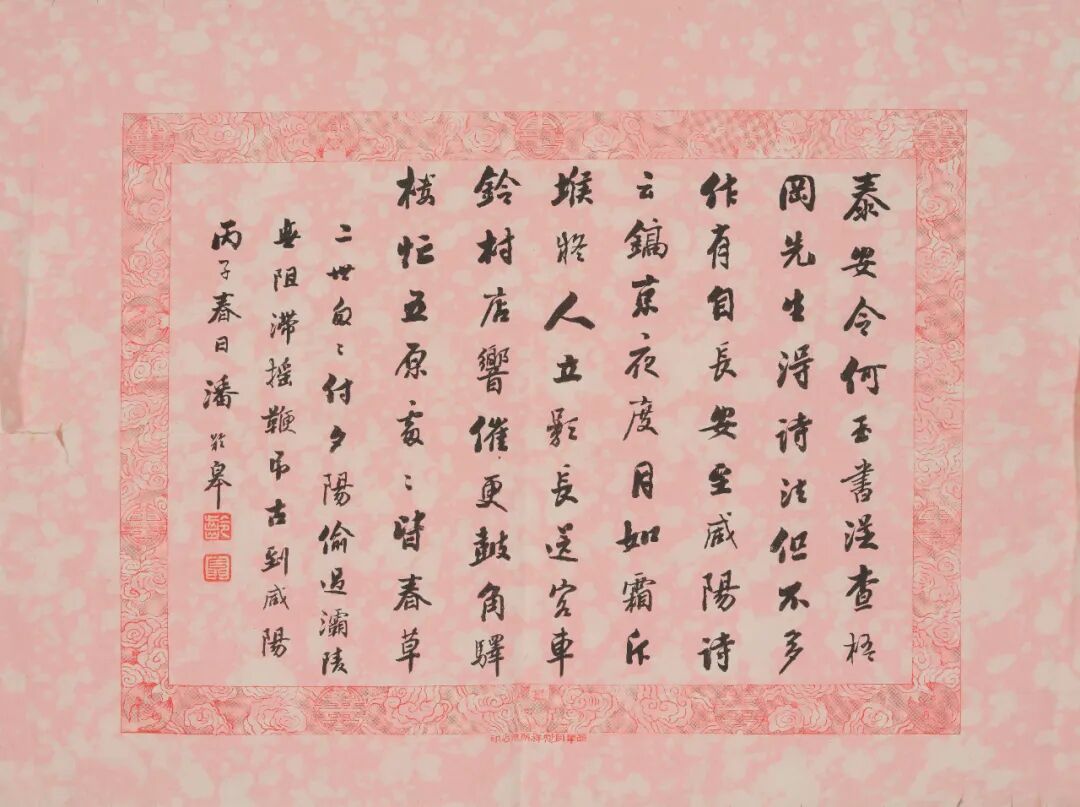 泰安令何玉書從查梧
岡先生得詩法但不多
作有自長安至咸陽詩
云鎬京夜度月如霜斥
堠將人立影長送客車
鈴村店響催更鼓角驛
樓忙五原處〻皆春草
二世匆〻付夕陽偷過灞陵
無阻滯搖鞭弔古到咸陽
丙子春日潘齡皋